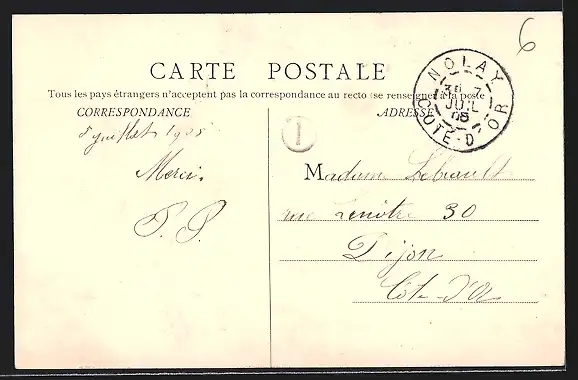 6
CARTE POSTALE
Tous les pays étrangers n'acceptent pas la correspondance au recto (se renseigner à la poste
CORRESPONDANCE
ADRESSE
NOLAY
JUIL
05
COTE-D'OR
juillet 1905
I
Merci.
Madame
rue Lenôtre 30
Dijon
Côte-d'Or